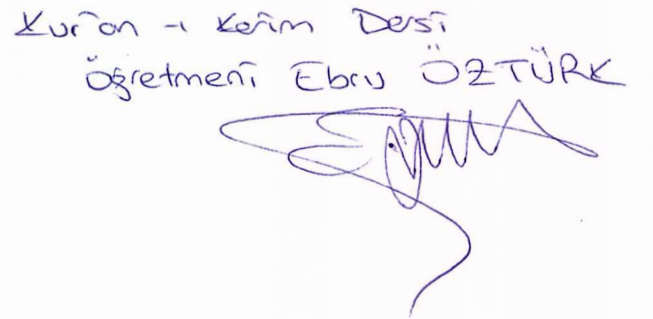 Kur'an -ı Kerim Dersi
Öğretmeni Ebru ÖZTÜRK